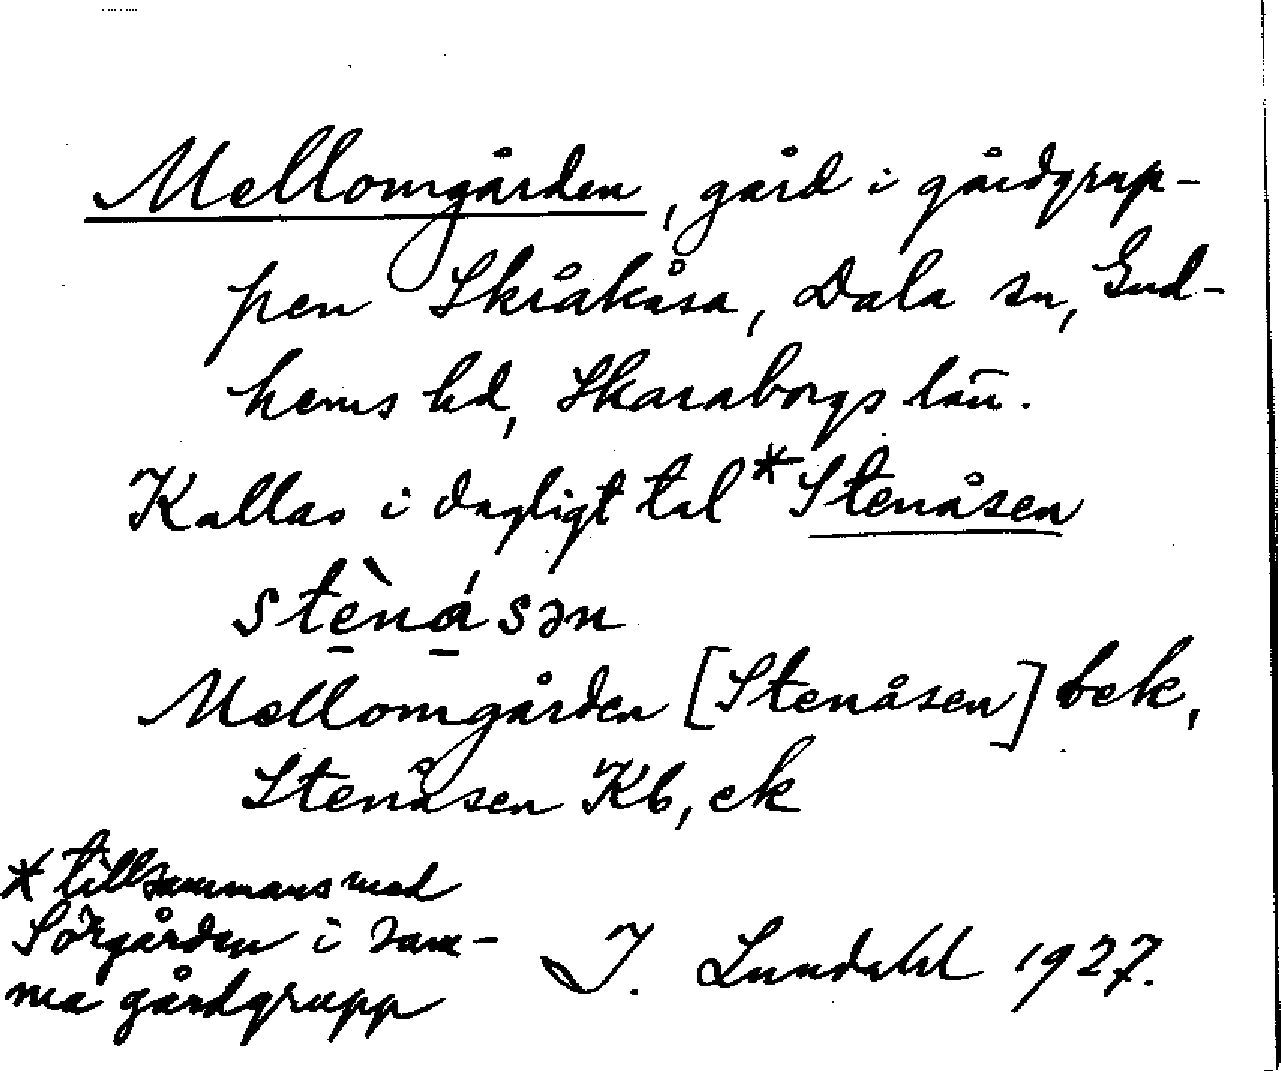 Mellomgården, gård i gårdgrup-
pen Skråkåsa, Dala sn, Gud-
hems hd, Skaraborgs län.
Kallas i dagligt tal *Stenåsen
stè̱ná̱sən
Mellomgården [Stenåsen] bek,
Stenåsen Kb, ek
* tillsammans med
Sörgården i sam-
ma gårdgrupp
I. Lundahl 1927.